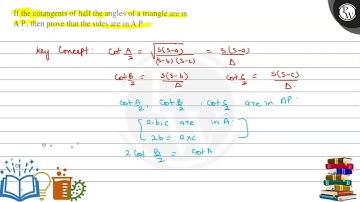 If the cotangents of half the angles of a triangle are in
A.P., then prove that the sides are in A.P.
Key Concept: cot A/2 = √(s(s-a)/(s-b)(s-c)) = s(s-a)/Δ
cot B/2 = s(s-b)/Δ cot C/2 = s(s-c)/Δ
cot A/2, cot B/2, cot C/2 are in AP.
a, b, c are in A.
2b = a+c
2 cot B/2 = cot A